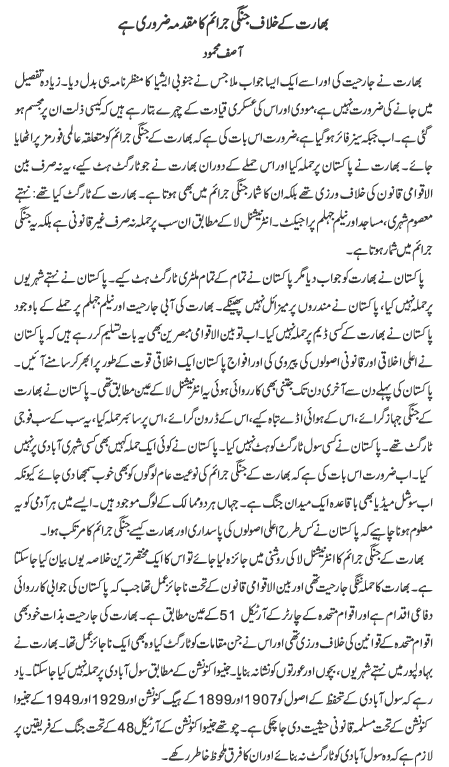 بھارت کے خلاف جنگی جرائم کا مقدمہ ضروری ہے
آصف محمود
بھارت نے جارحیت کی اور اسے ایک ایسا جواب ملا جس نے جنوبی ایشیا کا منظر نامہ ہی بدل دیا۔ زیادہ تفصیل
میں جانے کی ضرورت نہیں ہے، مودی اور اس کی عسکری قیادت کے چہرے بتا رہے ہیں کہ کیسی ذلت ان پر مجسم ہو
گئی ہے۔ اب جبکہ سیز فائر ہو گیا ہے، ضرورت اس بات کی ہے کہ بھارت کے جنگی جرائم کو متعلقہ عالمی فورمز پر اٹھایا
جائے۔ بھارت نے پاکستان پر حملہ کیا اور اس حملے کے دوران بھارت نے جو ٹارگٹ ہٹ کیے، یہ نہ صرف بین
الاقوامی قانون کی خلاف ورزی تھے بلکہ ان کا شمار جنگی جرائم میں بھی ہوتا ہے۔ بھارت کے ٹارگٹ کیا تھے: نہتے
معصوم شہری، مساجد اور نیلم جہلم پراجیکٹ۔ انٹرنیشنل لا کے مطابق ان سب پر حملہ نہ صرف غیر قانونی ہے بلکہ یہ جنگی
جرائم میں شمار ہوتا ہے۔
پاکستان نے بھارت کو جواب دیا مگر پاکستان نے تمام کے تمام ملٹری ٹارگٹ ہٹ کیے۔ پاکستان نے نہتے شہریوں
پر حملہ نہیں کیا، پاکستان نے مندروں پر میزائل نہیں پھینکے۔ بھارت کی آبی جارحیت اور نیلم جہلم پر حملے کے باوجود
پاکستان نے بھارت کے کسی ڈیم پر حملہ نہیں کیا۔ اب تو بین الاقوامی مبصرین بھی یہ بات تسلیم کر رہے ہیں کہ پاکستان
نے اعلی اخلاقی اور قانونی اصولوں کی پیروی کی اور افواج پاکستان ایک اخلاقی قوت کے طور پر ابھر کر سامنے آئیں۔
پاکستان کی پہلے دن سے آخری دن تک جتنی بھی کارروائی ہوئی یہ انٹرنیشنل لا کے عین مطابق تھی۔ پاکستان نے بھارت
کے جنگی جہاز گرائے، اس کے ہوائی اڈے تباہ کیے، اس کے ڈرون گرائے، اس پر سائبر حملہ کیا، یہ سب کے سب فوجی
ٹارگٹ تھے۔ پاکستان نے کسی سول ٹارگٹ کو ہٹ نہیں کیا۔ پاکستان نے کوئی ایک حملہ کہیں بھی کسی شہری آبادی پر نہیں
کیا۔ اب ضرورت اس بات کی ہے کہ بھارت کے جنگی جرائم کی نوعیت عام لوگوں کو بھی خوب سمجھا دی جائے کیونکہ
اب سوشل میڈیا بھی باقاعدہ ایک میدان جنگ ہے۔ جہاں ہر دو ممالک کے لوگ موجود ہیں۔ ایسے میں ہر آدمی کو یہ
معلوم ہونا چاہیے کہ پاکستان نے کس طرح اعلی اصولوں کی پاسداری اور بھارت کیسے جنگی جرائم کا مرتکب ہوا۔
بھارت کے جنگی جرائم کا انٹرنیشنل لا کی روشنی میں جائزہ لیا جائے تو اس کا ایک مختصر ترین خلاصہ یوں بیان کیا جا سکتا
ہے۔ بھارت کا حملہ ننگی جارحیت تھی اور بین الاقوامی قانون کے تحت ناجائز عمل تھا جب کہ پاکستان کی جوابی کارروائی
دفاعی اقدام ہے اور اقوام متحدہ کے چارٹر کے آرٹیکل 51 کے عین مطابق ہے۔ بھارت کی جارحیت بذات خود بھی
اقوام متحدہ کے قوانین کی خلاف ورزی تھی اور اس نے جن مقامات کو ٹارگٹ کیا وہ بھی ایک ناجائز عمل تھا۔ بھارت نے
بہاولپور میں نہتے شہریوں، بچوں اور عورتوں کو نشانہ بنایا۔ جنیوا کنونشن کے مطابق سول آبادی پر حملہ نہیں کیا جا سکتا۔ یاد
رہے کہ سول آبادی کے تحفظ کے اصول کو 1907 اور 1899 کے ہیگ کنونشن اور 1929 اور 1949 کے جنیوا
کنونشن کے تحت مسلمہ قانونی حیثیت دی جا چکی ہے۔ چوتھے جنیوا کنونشن کے آرٹیکل 48 کے تحت جنگ کے فریقین پر
لازم ہے کہ وہ سول آبادی کو ٹارگٹ نہ بنائے اور ان کا فرق ملحوظ خاطر رکھے۔